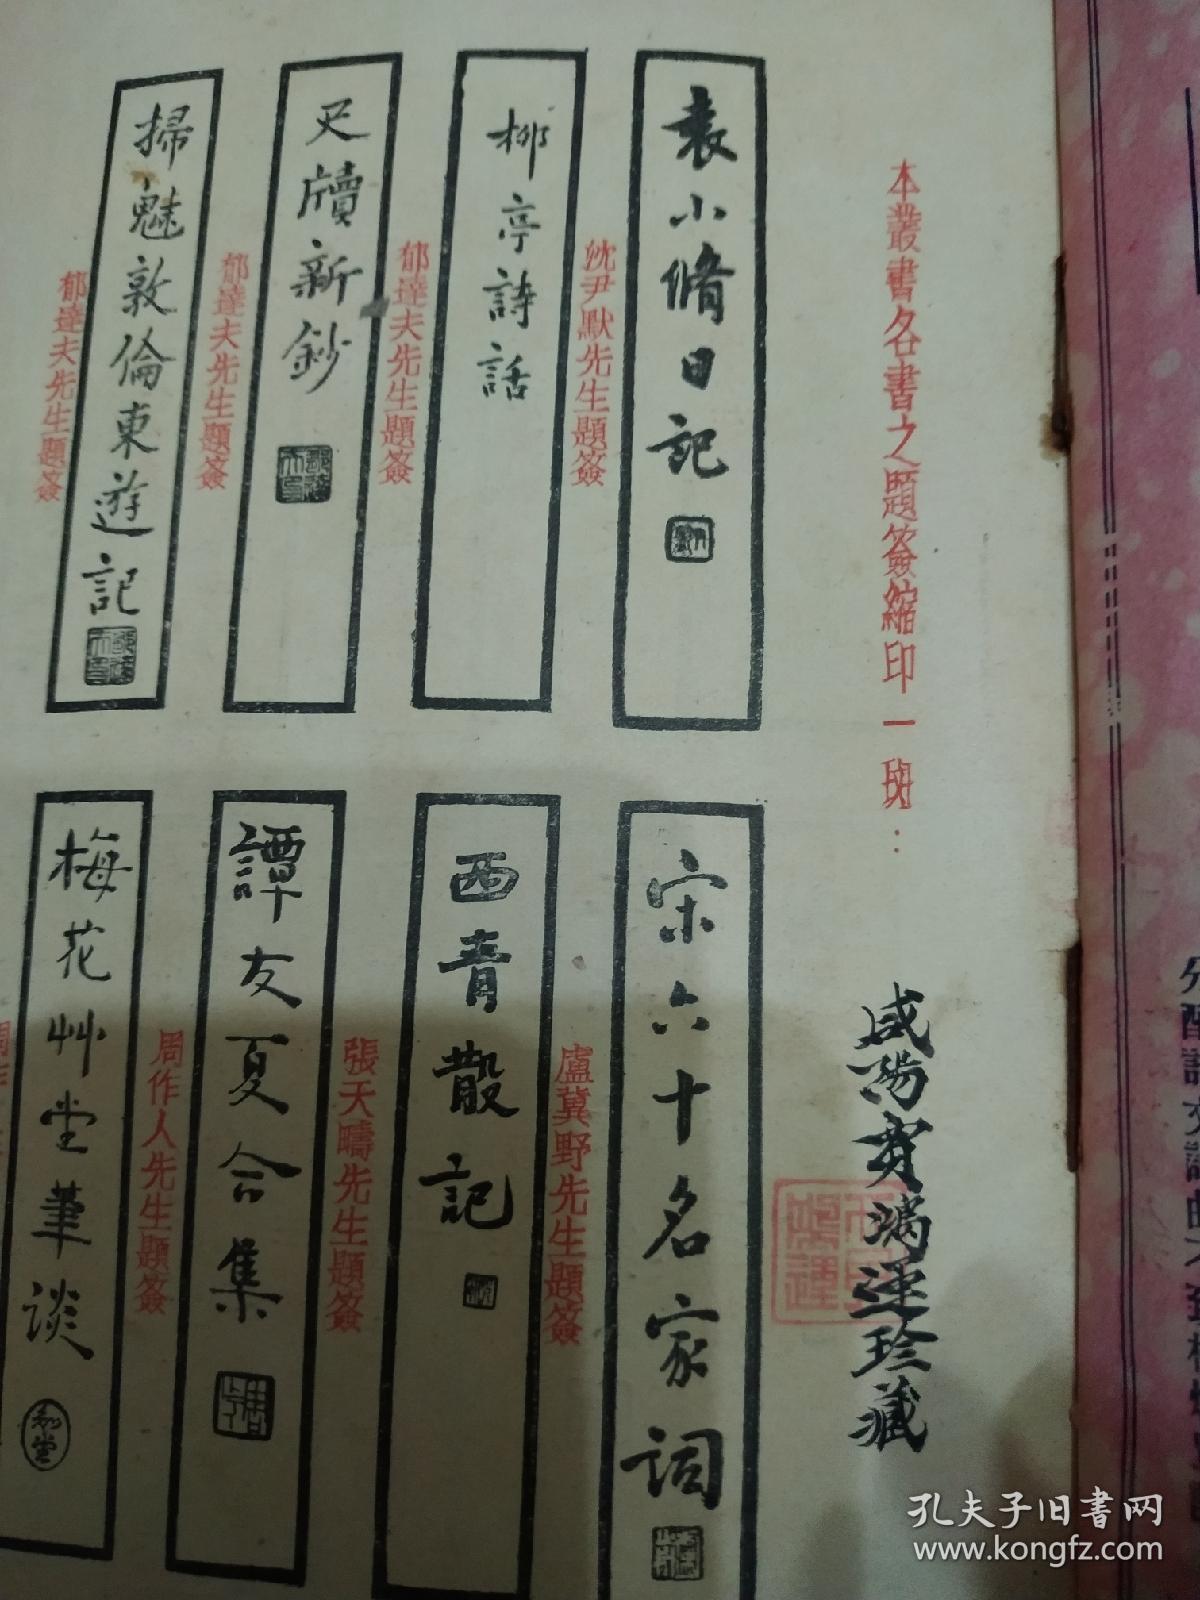 本叢書各書之題簽縮印一斑：
袁小脩日記
沈尹默先生題簽
柳亭詩話
郁達夫先生題簽
尺牘新鈔
郁達夫先生題簽
掃魅敦倫東遊記
郁達夫先生題簽
宋六十名家詞
盧冀野先生題簽
西青散記
張天疇先生題簽
譚友夏合集
周作人先生題簽
梅花艸堂筆談
知堂
周作
咸陽
珍藏
孔夫子旧書网
www.kongfz.com